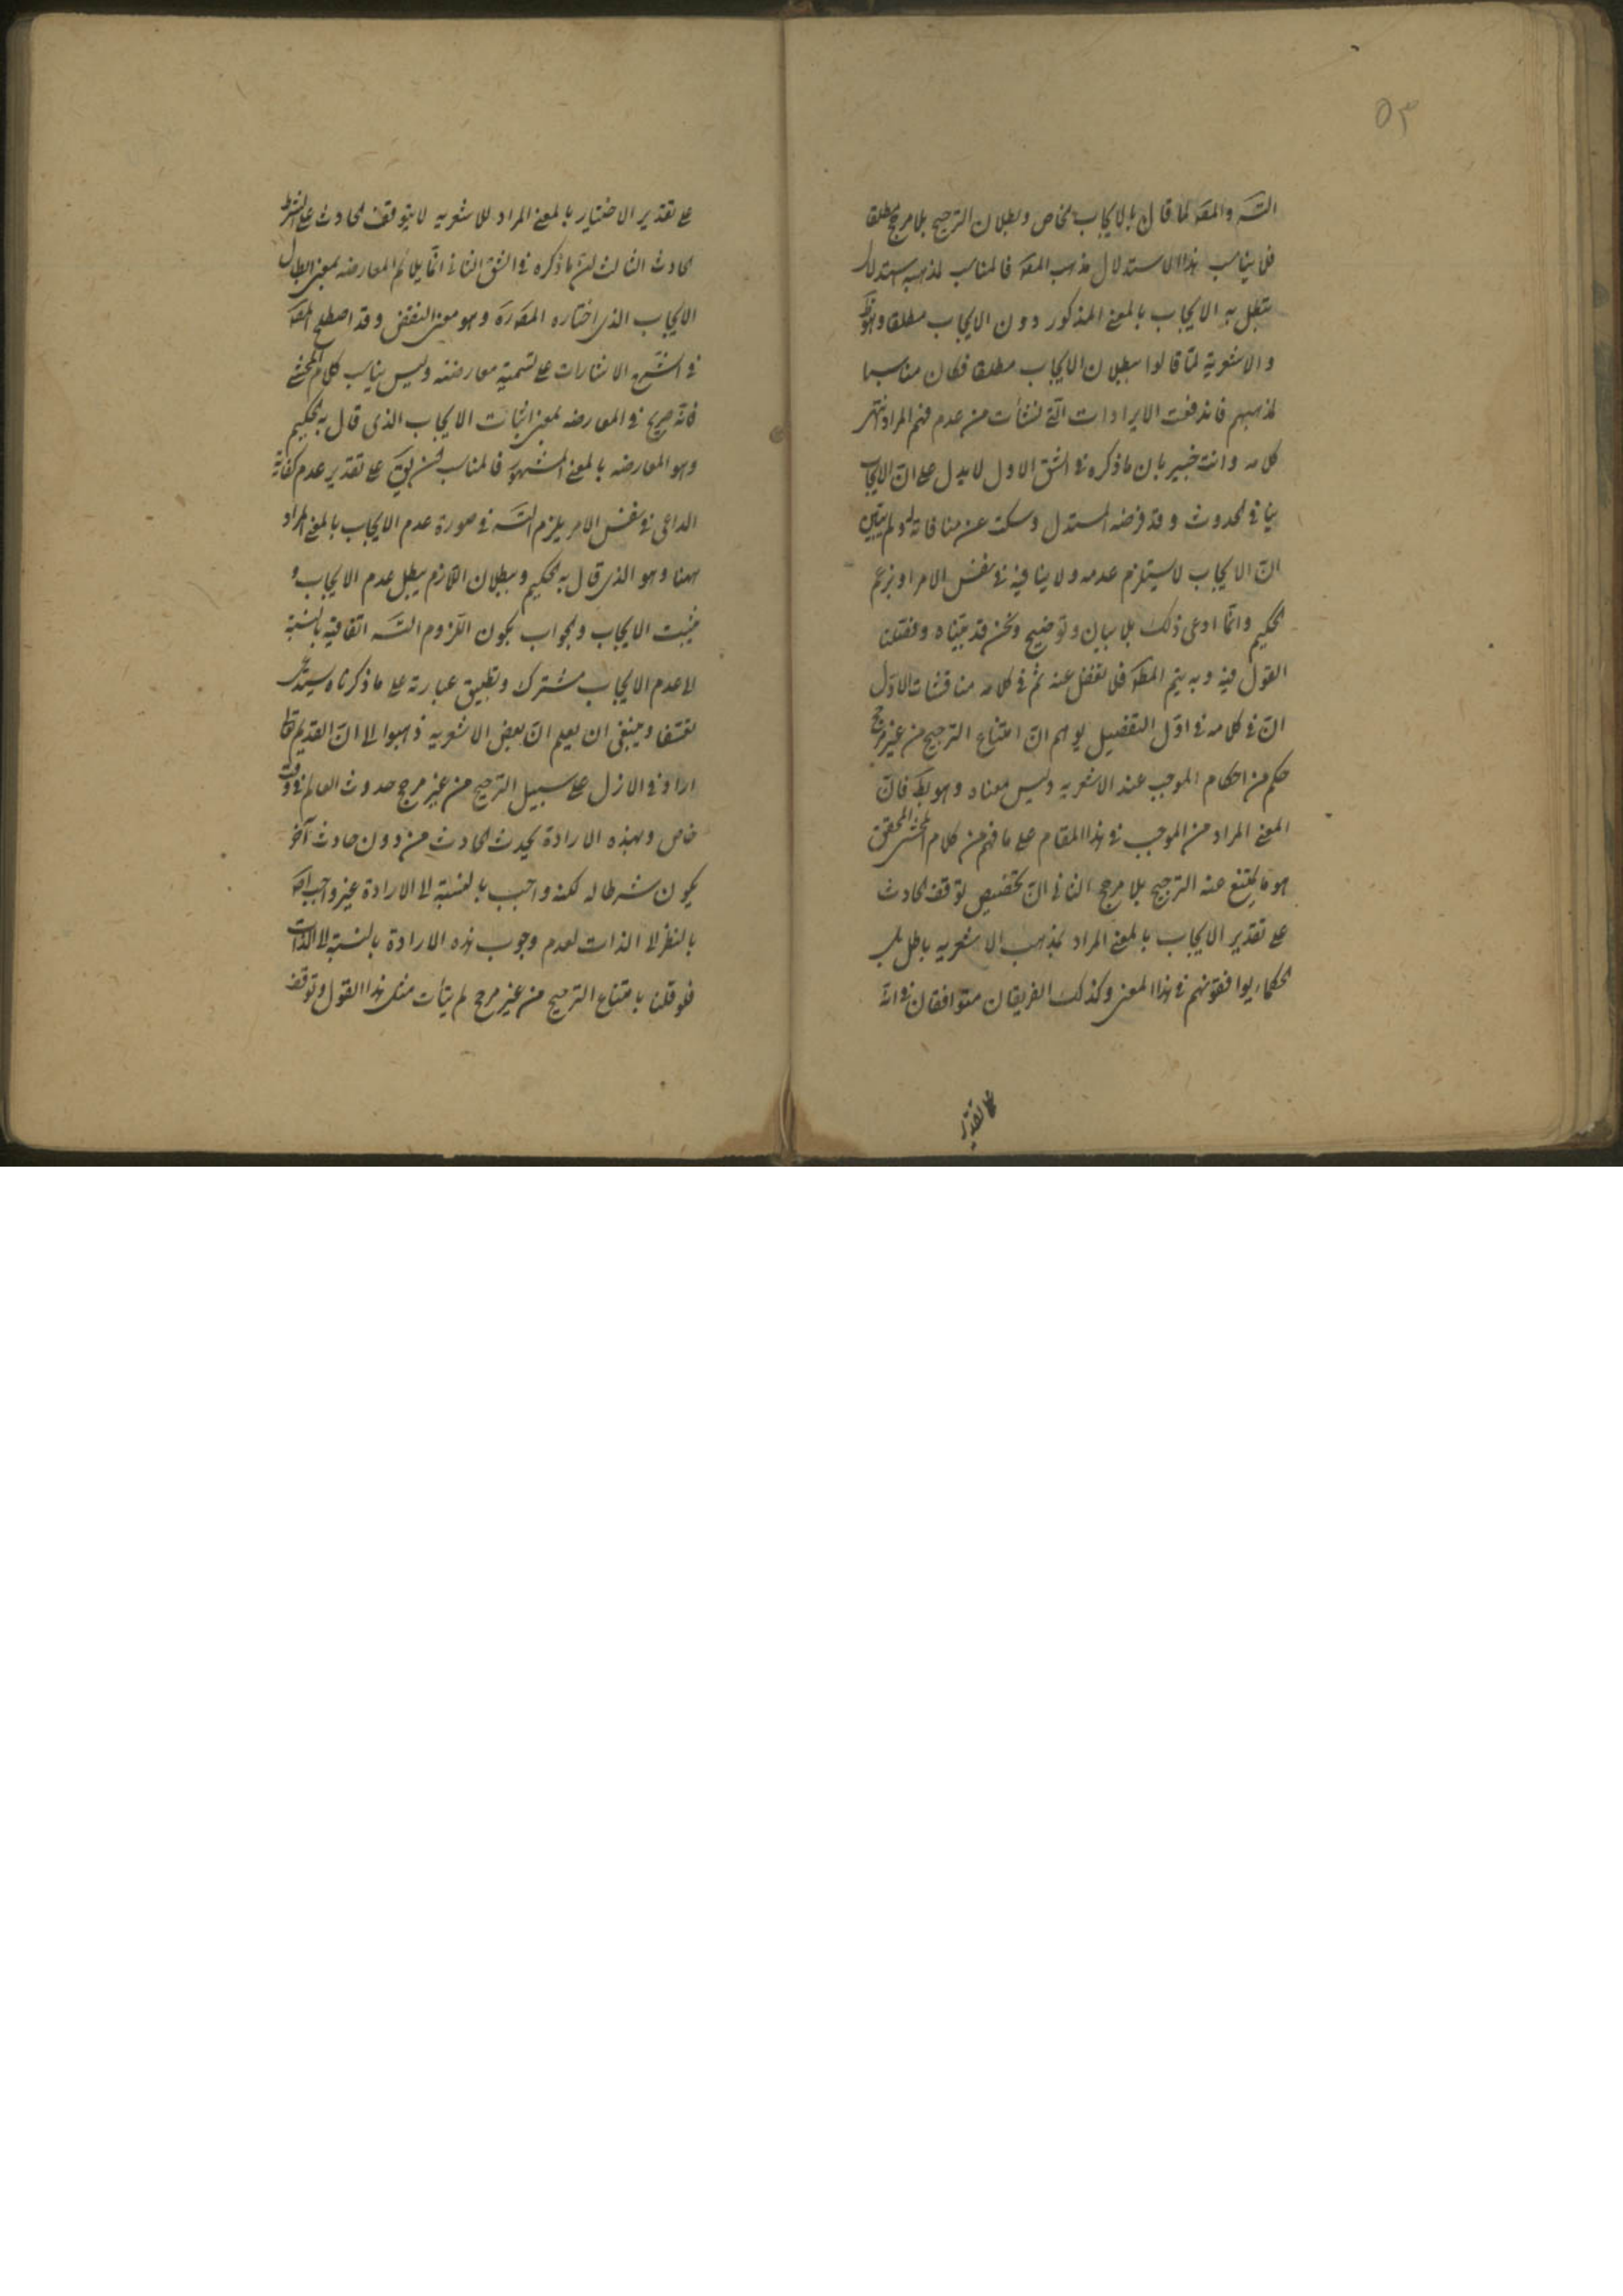 ٥٣
التسَـ والمقـَ لما قال بالايجاب الخاص وبطلان الترجيح بلا مرجح مطلقا
فلا يناسب هذا الاستدلال مذهب المصَـ فالمناسب لمذهبه استدلال
يبطل به الايجاب بالمعنى المذكور دون الايجاب مطلقا وهو ظَـ
والاشعرية لما قالوا ببطلان الايجاب مطلقا فكان مناسبا
لمذهبهم فاندفعت الايرادات التى نشأت من عدم فهم المراد انتهى
كلامه وانت خبير بان ما ذكره فى الشق الاول لا يدل على انّ الايجاب
ينافى الحدوث وقد فرضه المستدل وسكت عن منافاته له ولم يتبين
انّ الايجاب لا يستلزم عدمه ولا ينافيه فى نفس الامر او بزعم
الحكيم وانما ادعى ذلك بلا بيان وتوضيح ونحن قد بيّناه وفصّلنا
القول فيه وبه يتم المطَـ فلا تغفل عنه ثم فى كلامه مناقشات الاوّل
انّ فى كلامه فى اوّل التفصيل يوهم انّ امتناع الترجيح من غير مرجح
حكم من احكام الموجب عند الاشعرية وليس معناه وهو بطَـ فانّ
المعنى المراد من الموجب فى هذا المقام على ما فهم من كلام المحشى المحقق
هو ما يمتنع عنه الترجيح بلا مرجح الثانى انّ تخصيص توقف الحادث
على تقدير الايجاب بالمعنى المراد بمذهب الاشعرية باطل بل
الحكماء يوافقونهم فى هذا المعنى وكذلك الفريقان متوافقان فى انّه
على تقدير
على تقدير الاختيار بالمعنى المراد للاشعرية لا يتوقف الحادث على الشرط
الحادث الثالث انّ ما ذكره فى الشق الثانى انّما يلائم المعارضه بمعنى ابطال
الايجاب الذى اختاره المصَـ وهو معنى النقض وقد اصطلح المصَـ
فى شرح الاشارات على تسميته معارضه وليس يناسب كلام المحشى
فانّه صريح فى المعارضه بمعنى اثبات الايجاب الذى قال به الحكيم
وهو المعارضه بالمعنى المشهور فالمناسب ان يقَـ على تقدير عدم كفاية
الداعى فى نفس الامر يلزم التسَـ فى صورة عدم الايجاب بالمعنى المراد
ههنا وهو الذى قال به الحكيم وبطلان اللازم يبطل عدم الايجاب و
يثبت الايجاب والجواب بكون اللزوم التسَـ اتفاقيه بالنسبة
الى عدم الايجاب مشترك وتطبيق عبارته على ما ذكرناه يستدعى
تعسّفا وينبغى ان يعلم انّ بعض الاشعرية ذهبوا الى انّ القديم تعالى
اراد فى الازل على سبيل الترجيح من غير مرجح حدوث العالم فى وقت
خاص وبهذه الارادة يحدث الحادث من دون حادث آخر
يكون شرطا له لكنه واجب بالنسبة الى الارادة غير واجب
بالنظر الى الذات لعدم وجوب هذه الارادة بالنسبة الى الذات
فلو قلنا بامتناع الترجيح من غير مرجح لم يتأت مثل هذا القول وتوقف